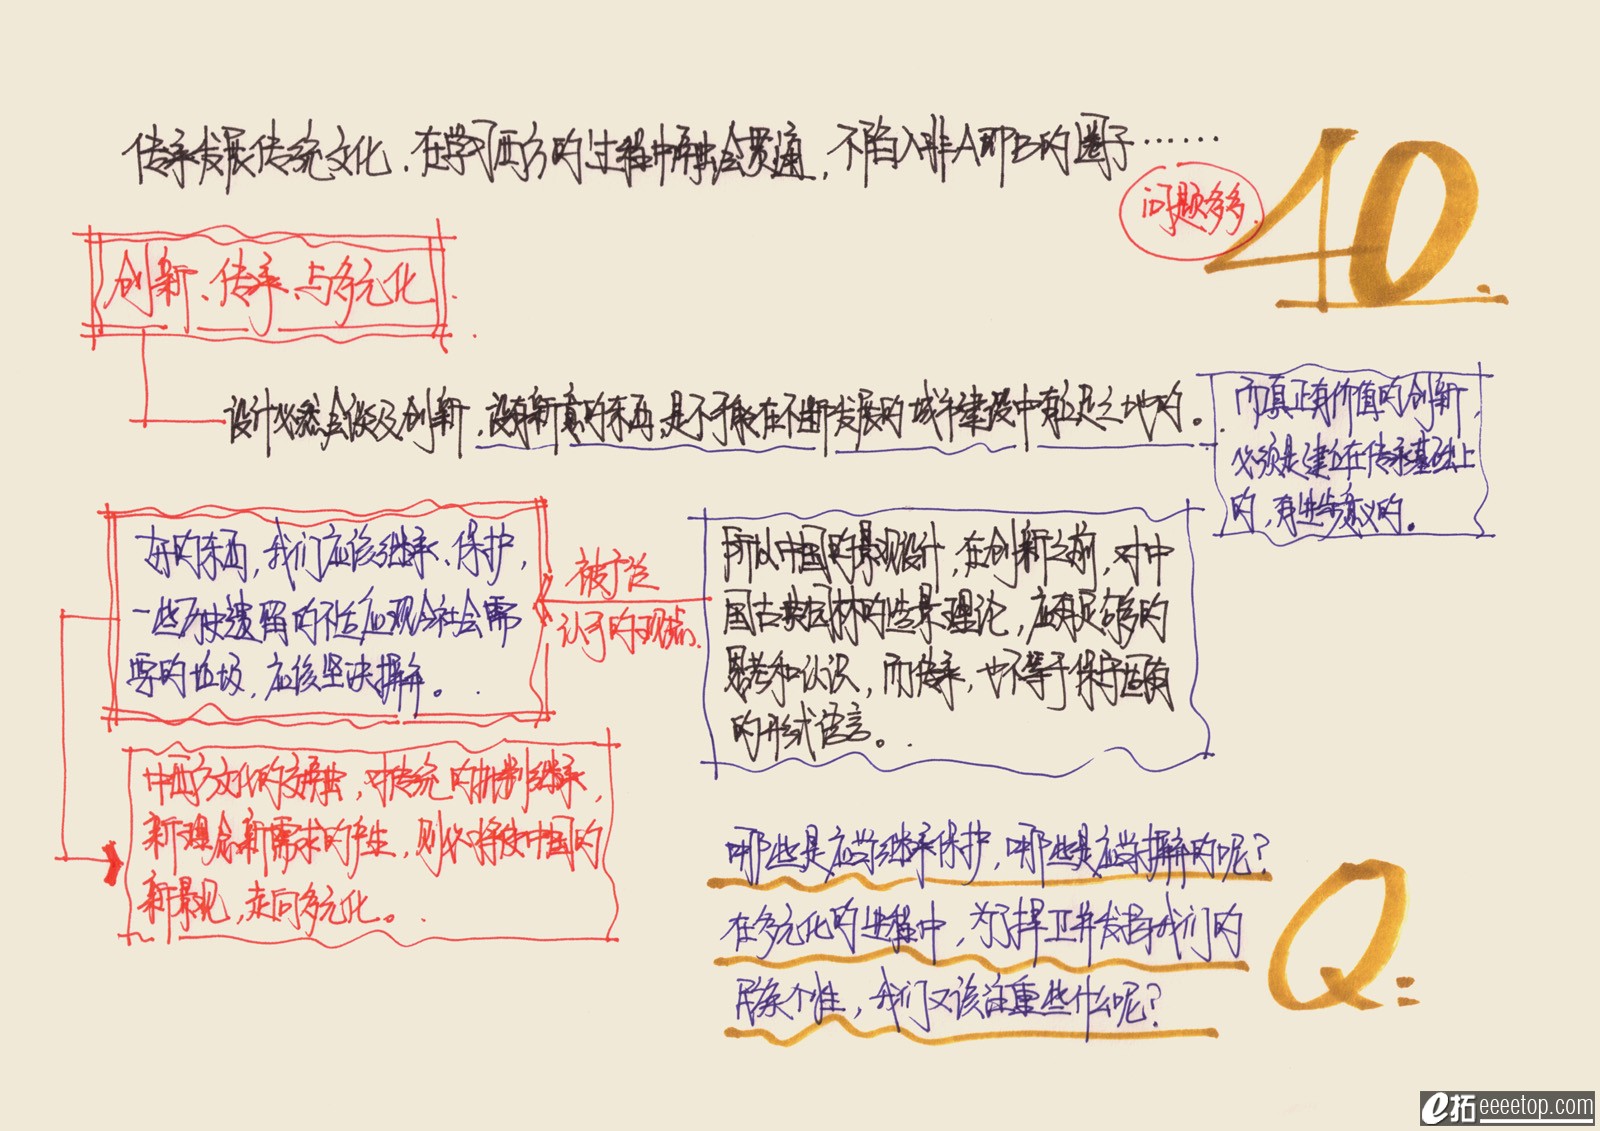 传承发展传统文化，在学习西方的过程中融会贯通，不陷入非A即B的圈子……
问题多多.
40.
创新、传承、与多元化.
设计必然会谈及创新，没有新意的东西，是不可能在不断发展的城市建设中有立足之地的。
而真正有价值的创新，
必须是建立在传承基础上
的，有进步意义的。
好的东西，我们应该继承、保护，
一些历史遗留的不适应现今社会需
要的垃圾，应该坚决摒弃。
被广泛
认可的观点.
所以中国的景观设计，在创新之前，对中
国古典园林的造景理论，应有足够的
思考和认识，而传承，也不等于保守固有
的形式语言。
中西方文化的交融，对传统的批判继承，
新理念新需求的产生，则必将使中国的
新景观，走向多元化。
哪些是应当继承保护，哪些是应当摒弃的呢？
在多元化的进程中，为了捍卫并发扬我们的
民族个性，我们又该注重些什么呢？
Q:
e拓 eeeetop.com